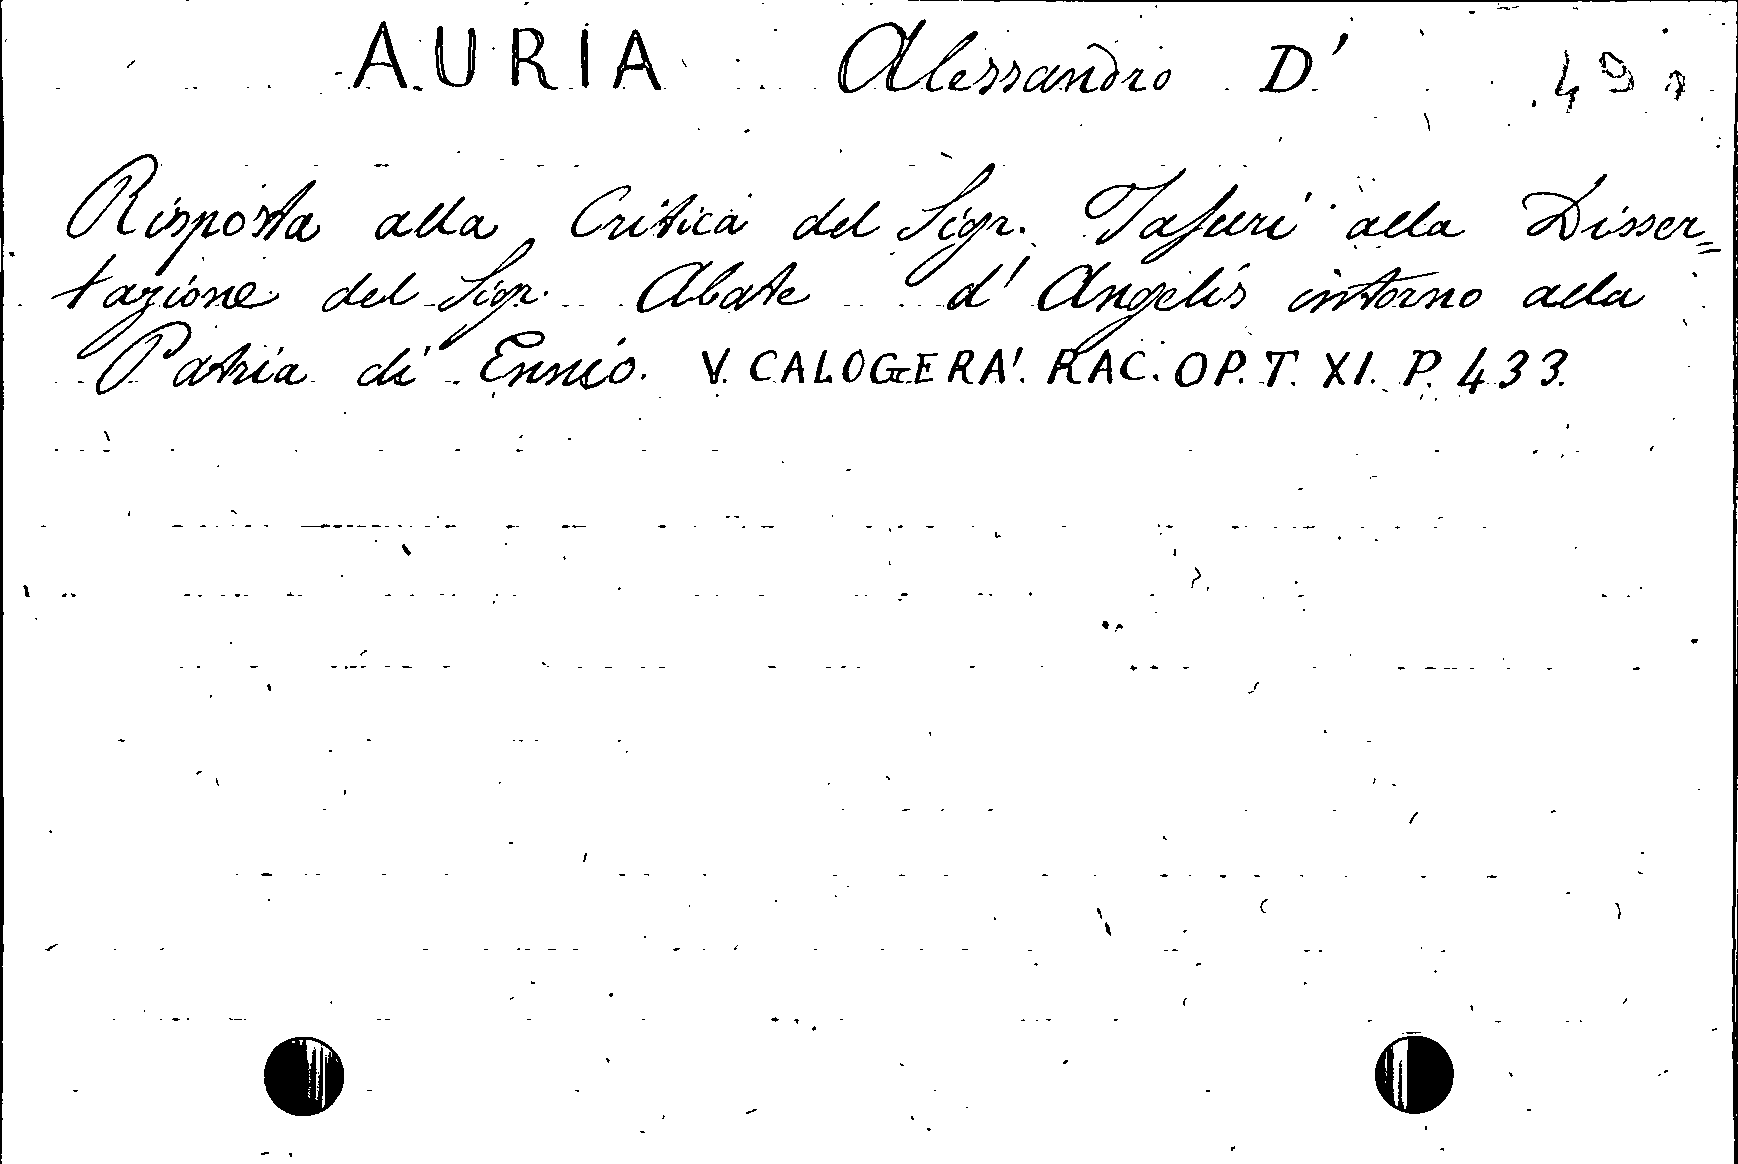 AURIA Alessandro D'
Risposta alla Critica del Sigr. Tafuri alla Disser=
tazione del Sigr. Abate d' Angelis intorno alla
Patria di Ennio. V. CALOGERA'. RAC. OP. T. XI. P. 433.